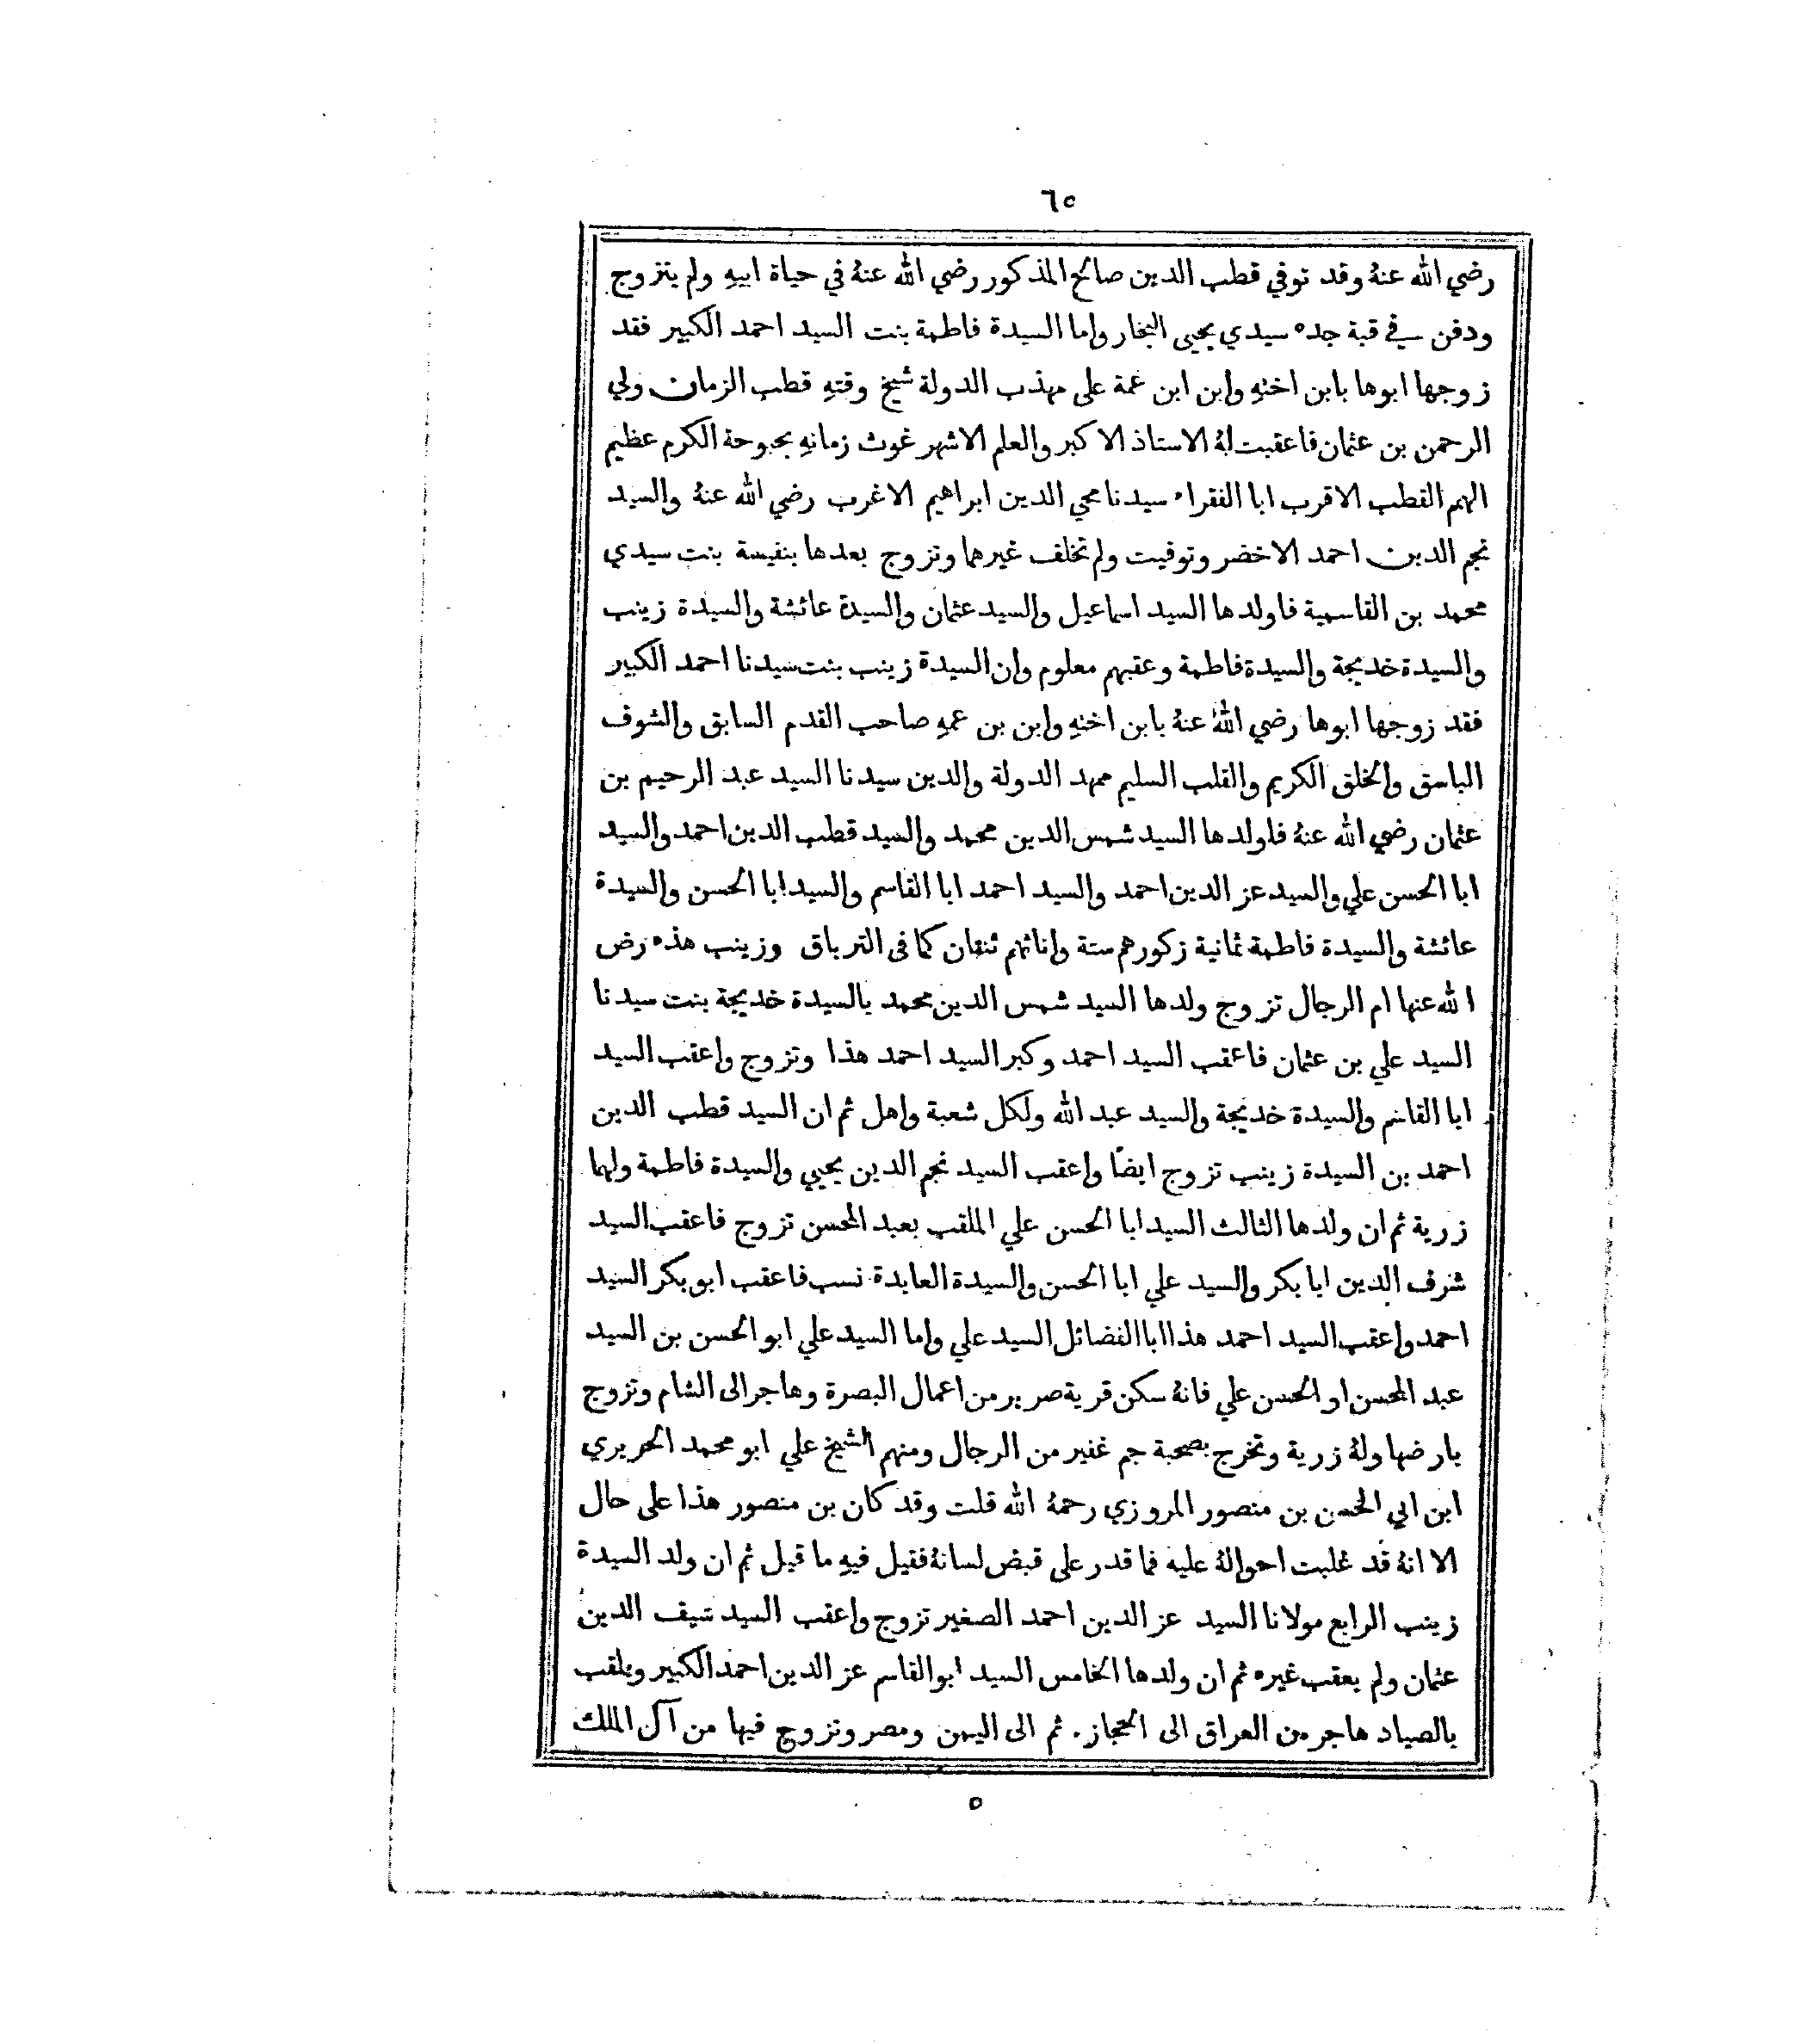 ٦٥
رضي الله عنهُ وقد توفي قطب الدين صالح المذكور رضي الله عنهُ في حياة ابيهِ ولم يتزوج
ودفن في قبة جده سيدي يحيى البخار واما السيدة فاطمة بنت السيد احمد الكبير فقد
زوجها ابوها بابن اختهِ وابن ابن عمة على مهذب الدولة شيخ وقتهِ قطب الزمان ولي
الرحمن بن عثمان فاعقبت لهُ الاستاذ الاكبر والعلم الاشهر غوث زمانهِ بحبوحة الكرم عظيم
الهمم القطب الاقرب ابا الفقراء سيدنا محي الدين ابراهيم الاغرب رضي الله عنهُ والسيد
نجم الدين احمد الاخضر وتوفيت ولم تخلف غيرهما وتزوج بعدها بنفيسة بنت سيدي
محمد بن القاسمية فاولدها السيد اسماعيل والسيد عثمان والسيدة عائشة والسيدة زينب
والسيدة خديجة والسيدة فاطمة وعقبهم معلوم وان السيدة زينب بنت سيدنا احمد الكبير
فقد زوجها ابوها رضي اللهُ عنهُ بابن اختهِ وابن بن عمهِ صاحب القدم السابق والشوف
الباسق والخلق الكريم والقلب السليم ممهد الدولة والدين سيدنا السيد عبد الرحيم بن
عثمان رضي الله عنهُ فلولدها السيد شمس الدين محمد والسيد قطب الدين احمد والسيد
ابا الحسن علي والسيد عز الدين احمد والسيد احمد ابا القاسم والسيد ابا الحسن والسيدة
عائشة والسيدة فاطمة ثمانية زكورهم ستة واناثهم ثنقان كما في الترباق وزينب هذه رض
الله عنها ام الرجال تزوج ولدها السيد شمس الدين محمد بالسيدة خديجة بنت سيدنا
السيد علي بن عثمان فاعقب السيد احمد وكبر السيد احمد هذا وتزوج واعقب السيد
ابا القاسم والسيدة خديجة والسيد عبد الله ولكل شعبة واهل ثم ان السيد قطب الدين
احمد بن السيدة زينب تزوج ايضًا واعقب السيد نجم الدين يحيى والسيدة فاطمة ولهما
زرية ثم ان ولدها الثالث السيد ابا الحسن علي الملقب بعبد المحسن تزوج فاعقب السيد
شرف الدين ابا بكر والسيد علي ابا الحسن والسيدة العابدة نسب فاعقب ابو بكر السيد
احمد واعقب السيد احمد هذا ابا الفضائل السيد علي واما السيد علي ابو الحسن بن السيد
عبد المحسن او الحسن علي فانهُ سكن قرية صرير من اعمال البصرة وهاجر الى الشام وتزوج
بارضها ولهُ زرية وتخرج بصحبة جم غفير من الرجال ومنهم الشيخ علي ابو محمد الحريري
ابن ابي الحسن بن منصور المروزي رحمهُ الله قلت وقد كان بن منصور هذا على حال
الا انهُ قد غلبت احوالهُ عليه فما قدر على قبض لسانهُ فقيل فيهِ ما قيل ثم ان ولد السيدة
زينب الرابع مولانا السيد عز الدين احمد الصغير تزوج واعقب السيد سيف الدين
عثمان ولم يعقب غيره ثم ان ولدها الخامس السيد ابو القاسم عز الدين احمد الكبير ويلقب
بالصياد هاجر من العراق الى الحجاز. ثم الى اليمن ومصر وتزوج فيها من آل الملك
٥